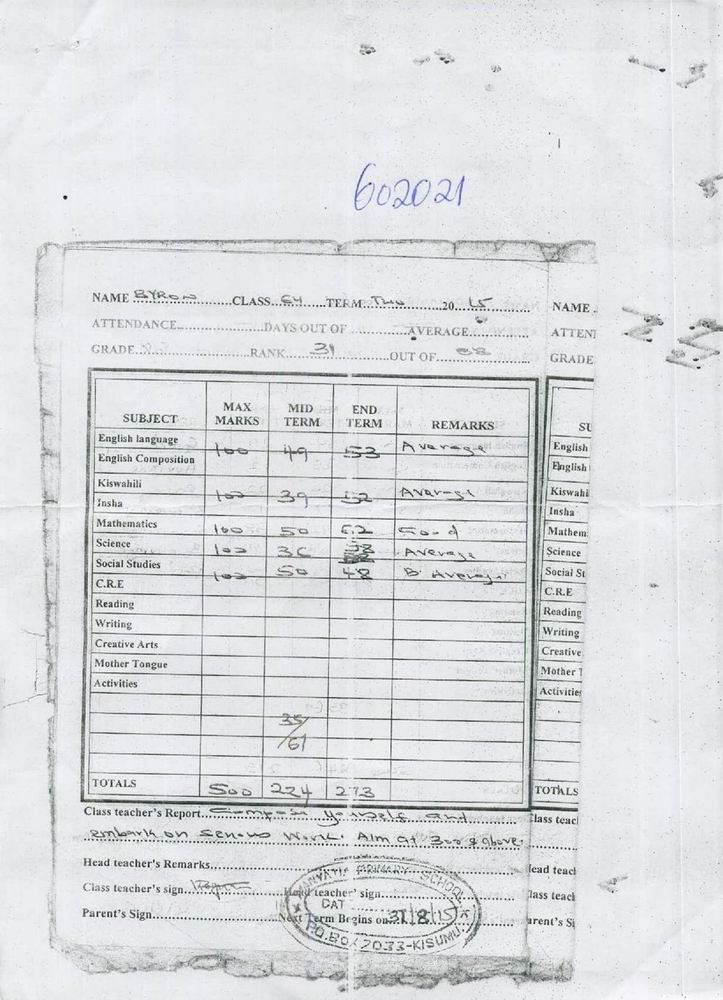 602021
NAME BYRON CLASS 6Y TERM Two 20 15
ATTENDANCE DAYS OUT OF AVERAGE
GRADE RANK 31 OUT OF 68
SUBJECT MAX MARKS MID TERM END TERM REMARKS
English language
English Composition 100 49 53 Average
Kiswahili
Insha 100 39 52 Average
Mathematics 100 50 62 Good
Science 100 36 Average
Social Studies
C.R.E 100 50 48 B. Average
Reading
Writing
Creative Arts
Mother Tongue
Activities
35/61
TOTALS 500 224 273
Class teacher's Report Compose yourself and
embark on serious work. Aim at 300 & above.
Head teacher's Remarks
Class teacher's sign Head teacher' sign
Parent's Sign Next Term Begins on 31/8/15
PRIMARY SCHOOL
DAT
P.O.BOX 2033-KISUMU
NAME
ATTEN
GRADE
SU
English
English
Kiswahi
Insha
Mathem
Science
Social St
C.R.E
Reading
Writing
Creative
Mother T
Activities
TOTALS
lass teac
ead teach
lass teac
arent's Si